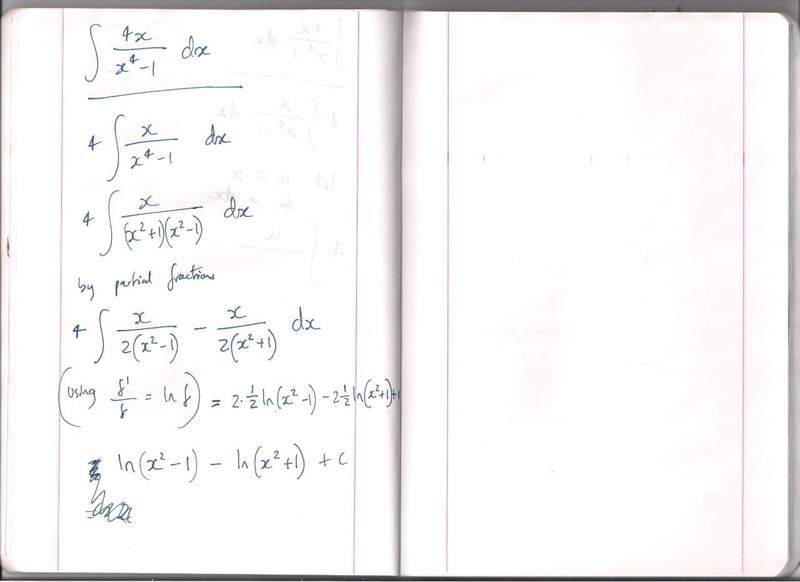 ∫ 4x/(x⁴-1) dx
4 ∫ x/(x⁴-1) dx
4 ∫ x/((x²+1)(x²-1)) dx
by partial fractions
4 ∫ x/(2(x²-1)) - x/(2(x²+1)) dx
(using f'/f = ln f) = 2·½ ln(x²-1) - 2½ ln(x²+1) +
ln(x²-1) - ln(x²+1) + c